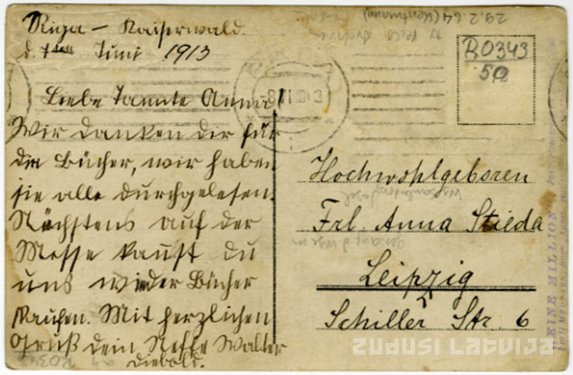 Riga – Kaiserwald.
d. 1ten Juni 1913
Liebe Tannte Anna!
Wir danken dir für
die Bücher, wir haben
sie alle durchgelesen.
Nächstens auf der
Messe kaufst du
uns wieder Bücher
kaufen. Mit herzlichen
Gruß dein Neffe Walter
Diebold.
29.2.64 (Kentmann)
R0343
50
Hochwohlgeboren
Frl. Anna Stieda
Leipzig
Schiller Str. 6
EINE MILLION
ZUDUSI LATVIJA